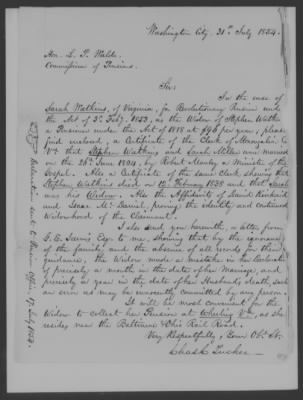 Washington City, 31st July 1854.
Hon. L. P. Waldo
Commissioner of Pensions.
Sir:
In the case of
Sarah Watkins, of Virginia, for Revolutionary Pension under
the Act of 3d Feby. 1853, as the Widow of Stephen Watkins
a Pensioner under the Act of 1818 at $96 per year; please
find enclosed, a Certificate of the Clerk of Monongalia Co.
Va. that Stephen Watkins and Sarah Miller were married
on the 26th June 1804, by Robert Manley a Minister of the
Gospel. Also a Certificate of the same Clerk showing that
Stephen Watkins died on 12th February 1838 and that Sarah
was his Widow. Also the Affidavits of
and Isaac proving the identity and continued
Widowhood of the Claimant.
I also send you herewith, a letter from
G. R. Esqr. to me, showing that by the ignorance
of the family, and the absence of all records for their
guidance, the Widow made a mistake in her Declaration
of precisely a month in the date of her Marriage, and
precisely a year in the date of her Husband's death, such
an error as may be innocently committed by any person.
It will be most convenient for the
Widow to collect her Pension at Wheeling Va., as she
resides near the Baltimore & Ohio Rail Road.
Very Respectfully, Your Obt. St.
Chas. C. Tucker
Declaration sent to Pension Office 17 July 1854.